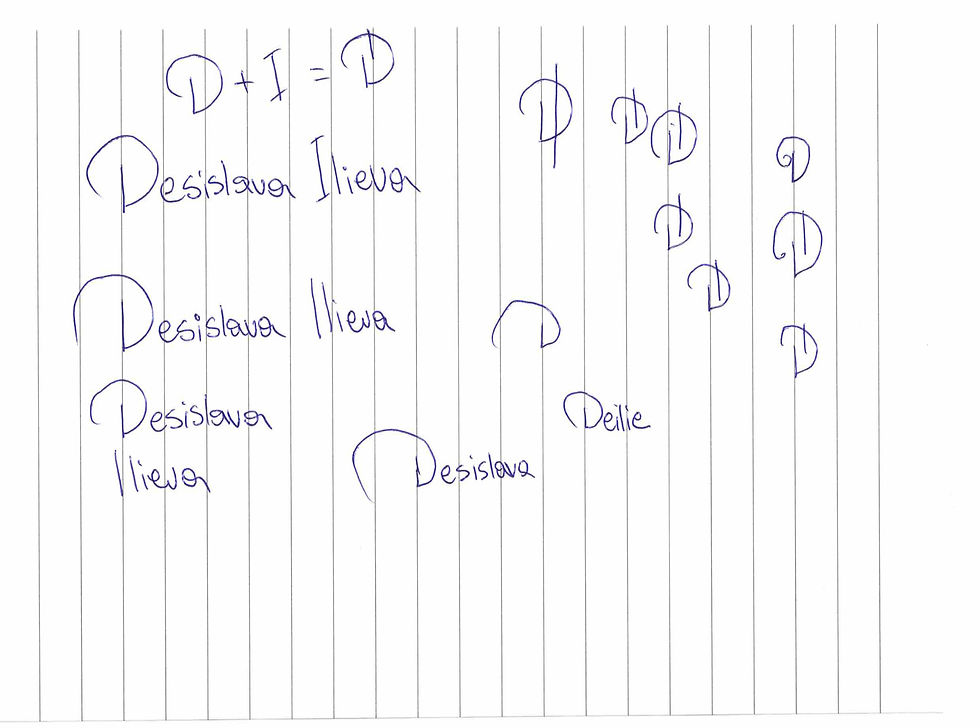 D + I = D
Desislava Ilieva
Desislava Ilieva
D
Desislava
Ilieva
Deilie
Desislava